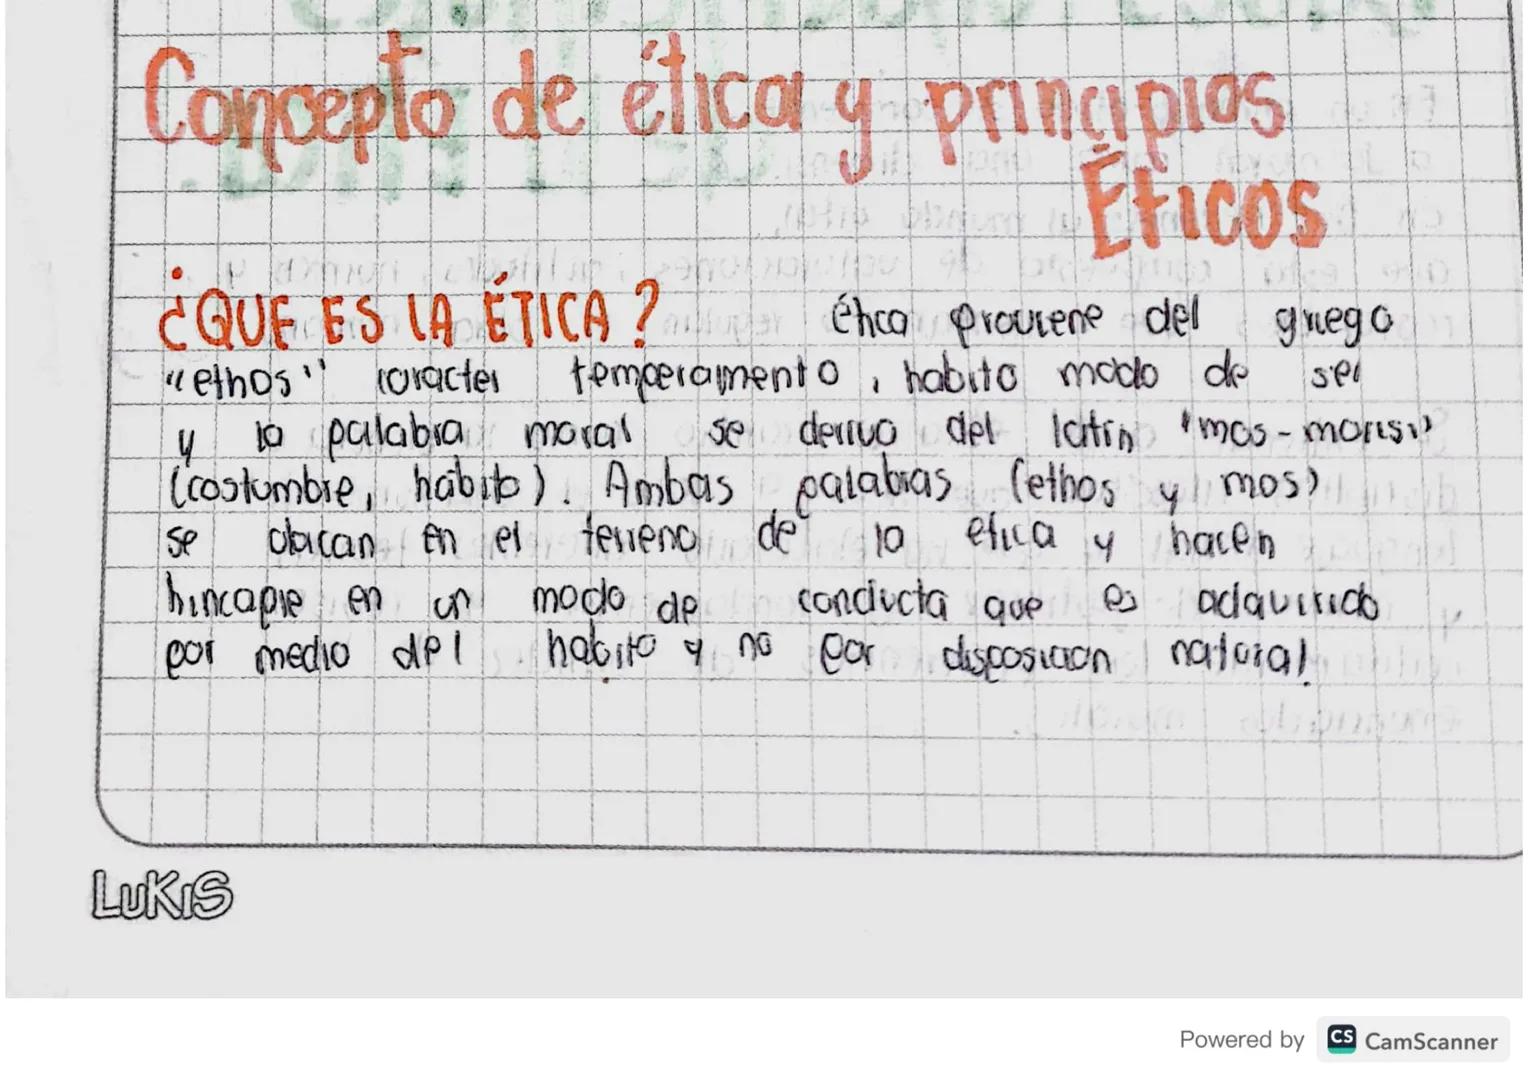 Concepto de ética y principios
Éticos
¿QUE ES LA ÉTICA? ética proviene del griego
"ethos" caracter temperamento, habito modo de ser
y la palabra moral se deriva del latin "mos-moris"
(costumbre, hábito). Ambas palabras (ethos y mos)
se ubican en el terreno de la etica y hacen
hincapie en un modo de conducta que es adquirido
por medio del habito y no por disposicion natural.
LUKIS
Powered by CS CamScanner